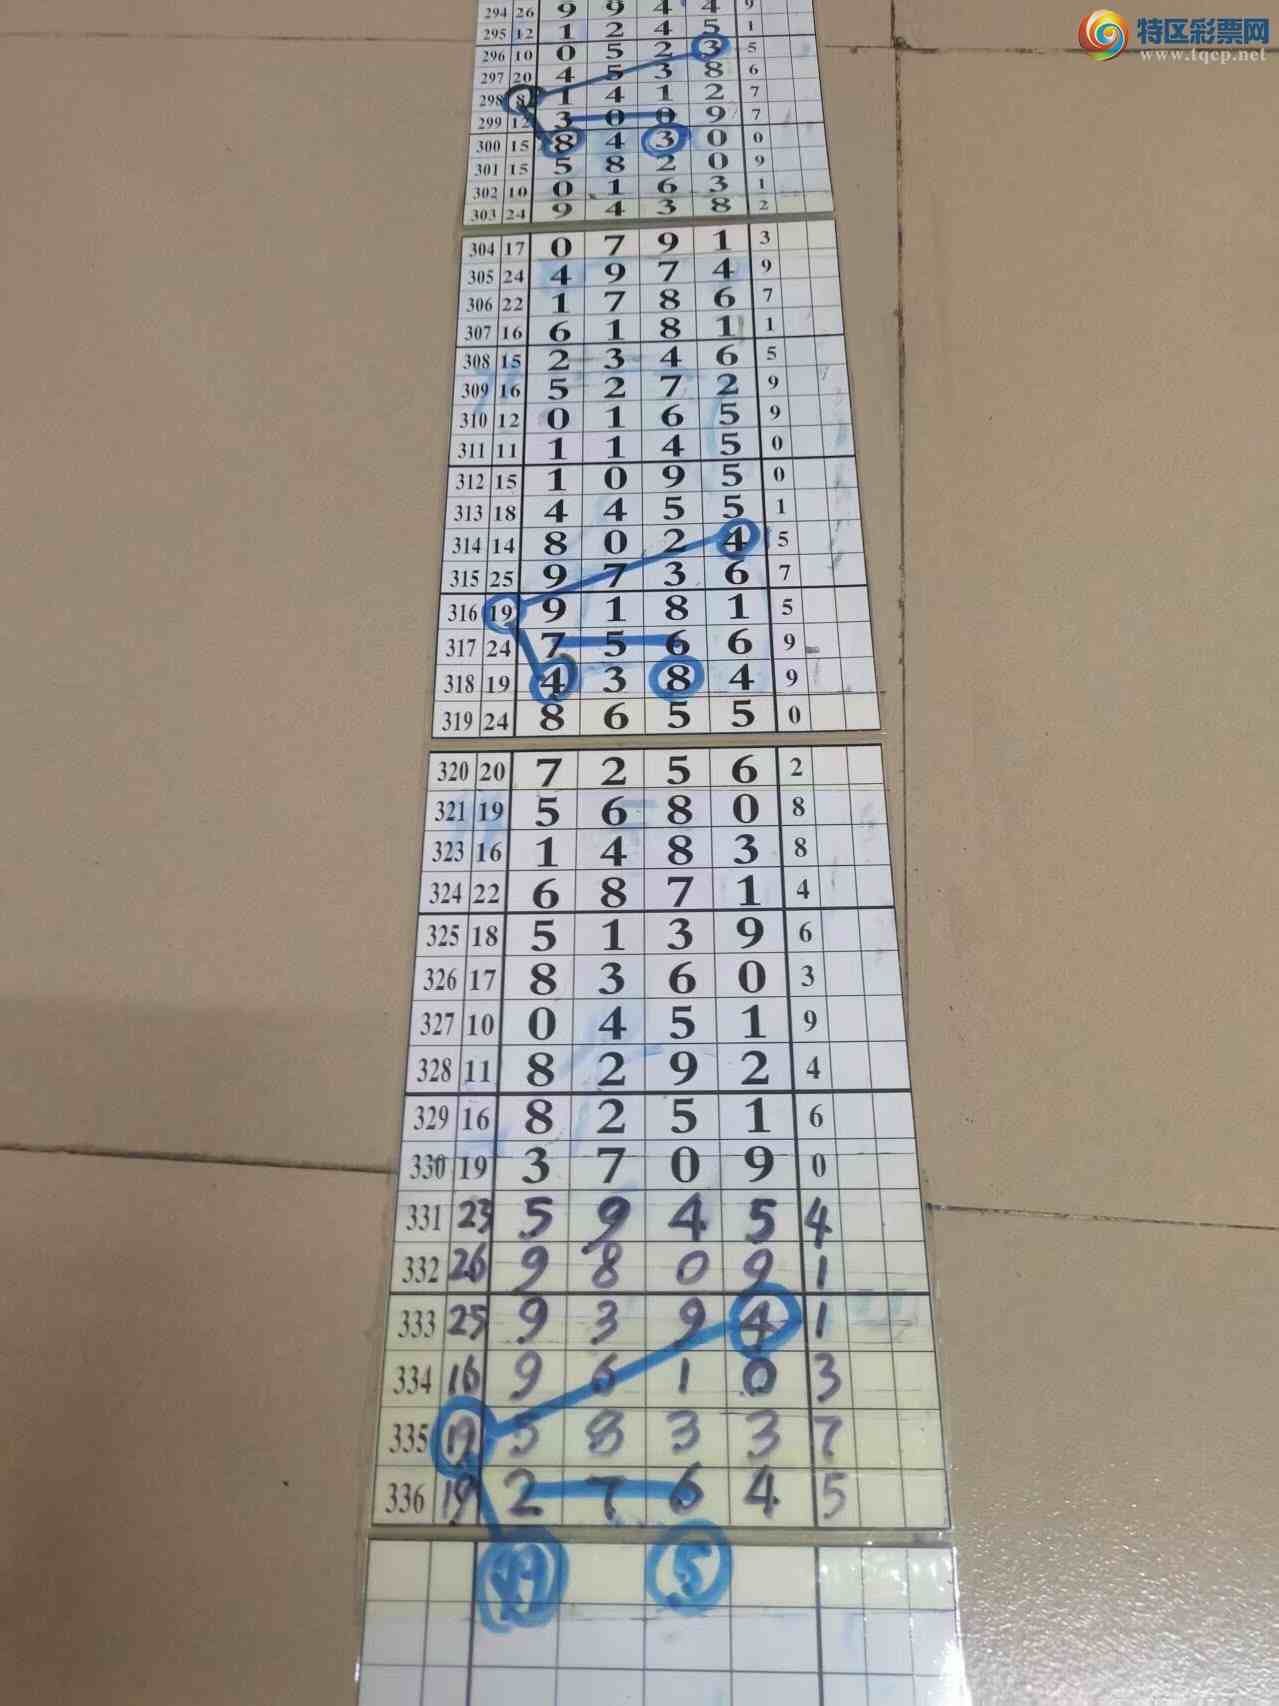 特区彩票网
www.tqcp.net
294 26 9 9 4 4 9
295 12 1 2 4 5 1
296 10 0 5 2 3 5
297 20 4 5 3 8 6
298 8 1 4 1 2 7
299 12 3 0 0 9 7
300 15 8 4 3 0 0
301 15 5 8 2 0 9
302 10 0 1 6 3 1
303 24 9 4 3 8 2
304 17 0 7 9 1 3
305 24 4 9 7 4 9
306 22 1 7 8 6 7
307 16 6 1 8 1 1
308 15 2 3 4 6 5
309 16 5 2 7 2 9
310 12 0 1 6 5 9
311 11 1 1 4 5 0
312 15 1 0 9 5 0
313 18 4 4 5 5 1
314 14 8 0 2 4 5
315 25 9 7 3 6 7
316 19 9 1 8 1 5
317 24 7 5 6 6 9
318 19 4 3 8 4 9
319 24 8 6 5 5 0
320 20 7 2 5 6 2
321 19 5 6 8 0 8
323 16 1 4 8 3 8
324 22 6 8 7 1 4
325 18 5 1 3 9 6
326 17 8 3 6 0 3
327 10 0 4 5 1 9
328 11 8 2 9 2 4
329 16 8 2 5 1 6
330 19 3 7 0 9 0
331 23 5 9 4 5 4
332 26 9 8 0 9 1
333 25 9 3 9 4 1
334 16 9 6 1 0 3
335 19 5 8 3 3 7
336 19 2 7 6 4 5
49 5